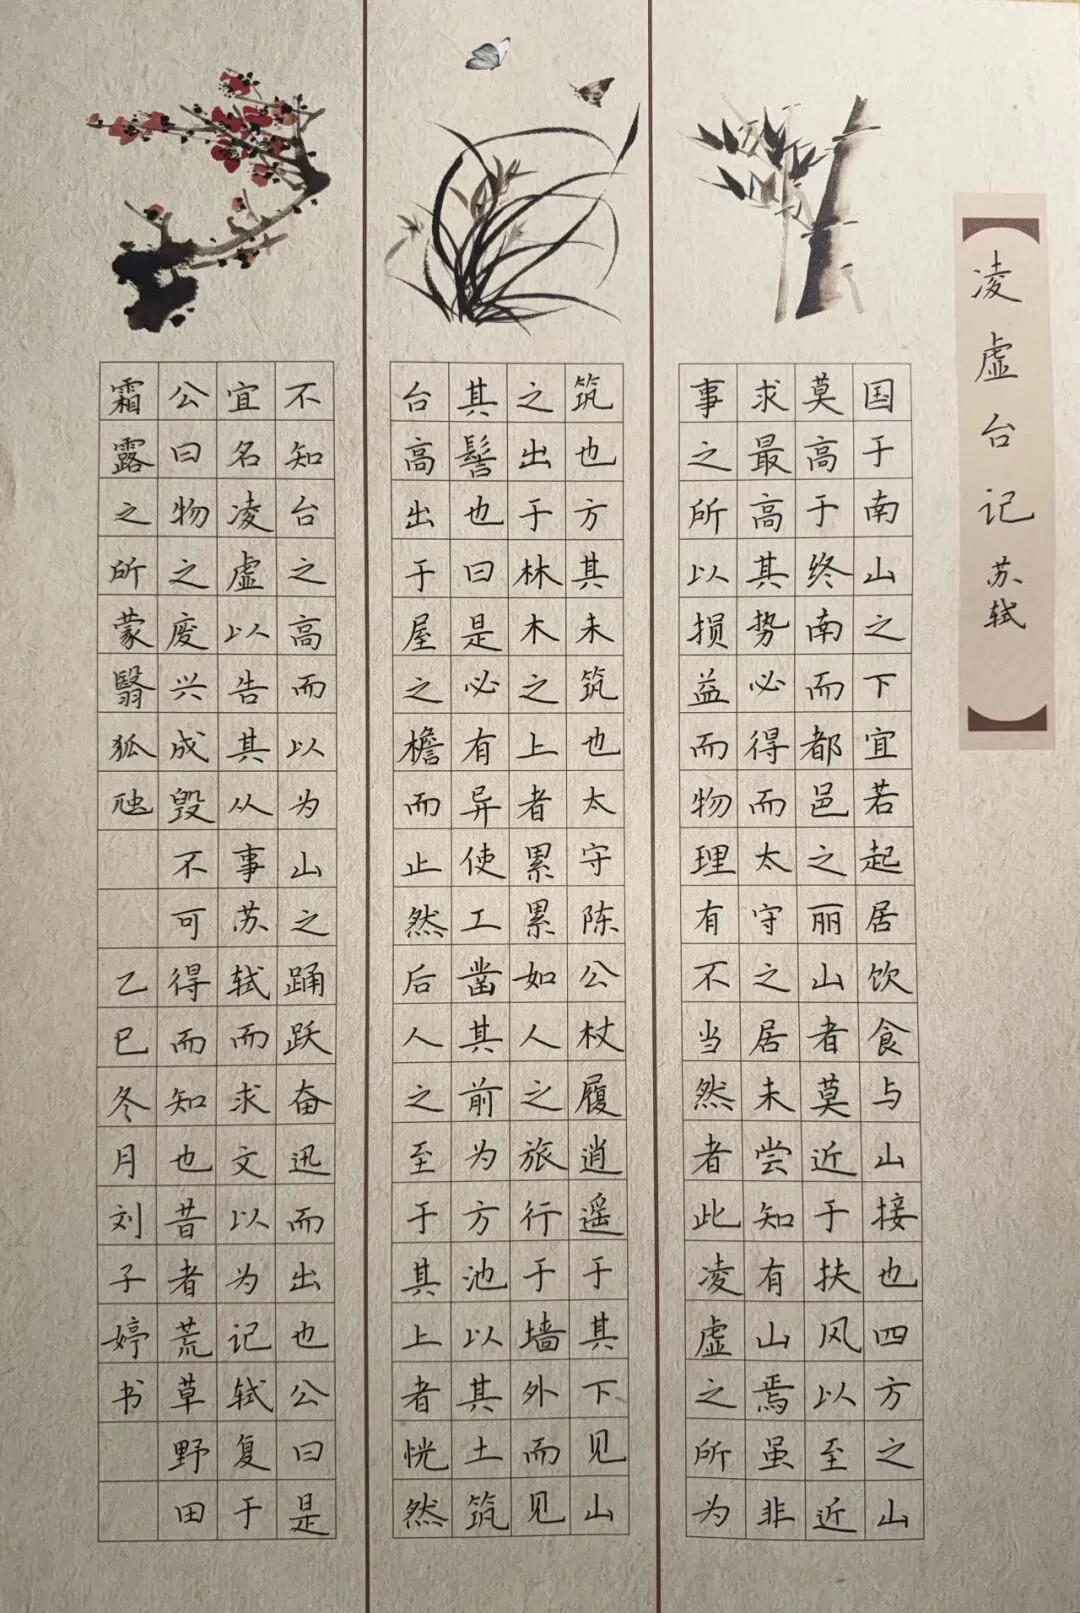 凌虚台记 苏轼
国于南山之下宜若起居饮食与山接也四方之山
莫高于终南而都邑之丽山者莫近于扶风以至近
求最高其势必得而太守之居未尝知有山焉虽非
事之所以损益而物理有不当然者此凌虚之所为
筑也方其未筑也太守陈公杖履逍遥于其下见山
之出于林木之上者累累如人之旅行于墙外而见
其髻也曰是必有异使工凿其前为方池以其土筑
台高出于屋之檐而止然后人之至于其上者恍然
不知台之高而以为山之踊跃奋迅而出也公曰是
宜名凌虚以告其从事苏轼而求文以为记轼复于
公曰物之废兴成毁不可得而知也昔者荒草野田
霜露之所蒙翳狐虺 乙巳冬月刘子婷书